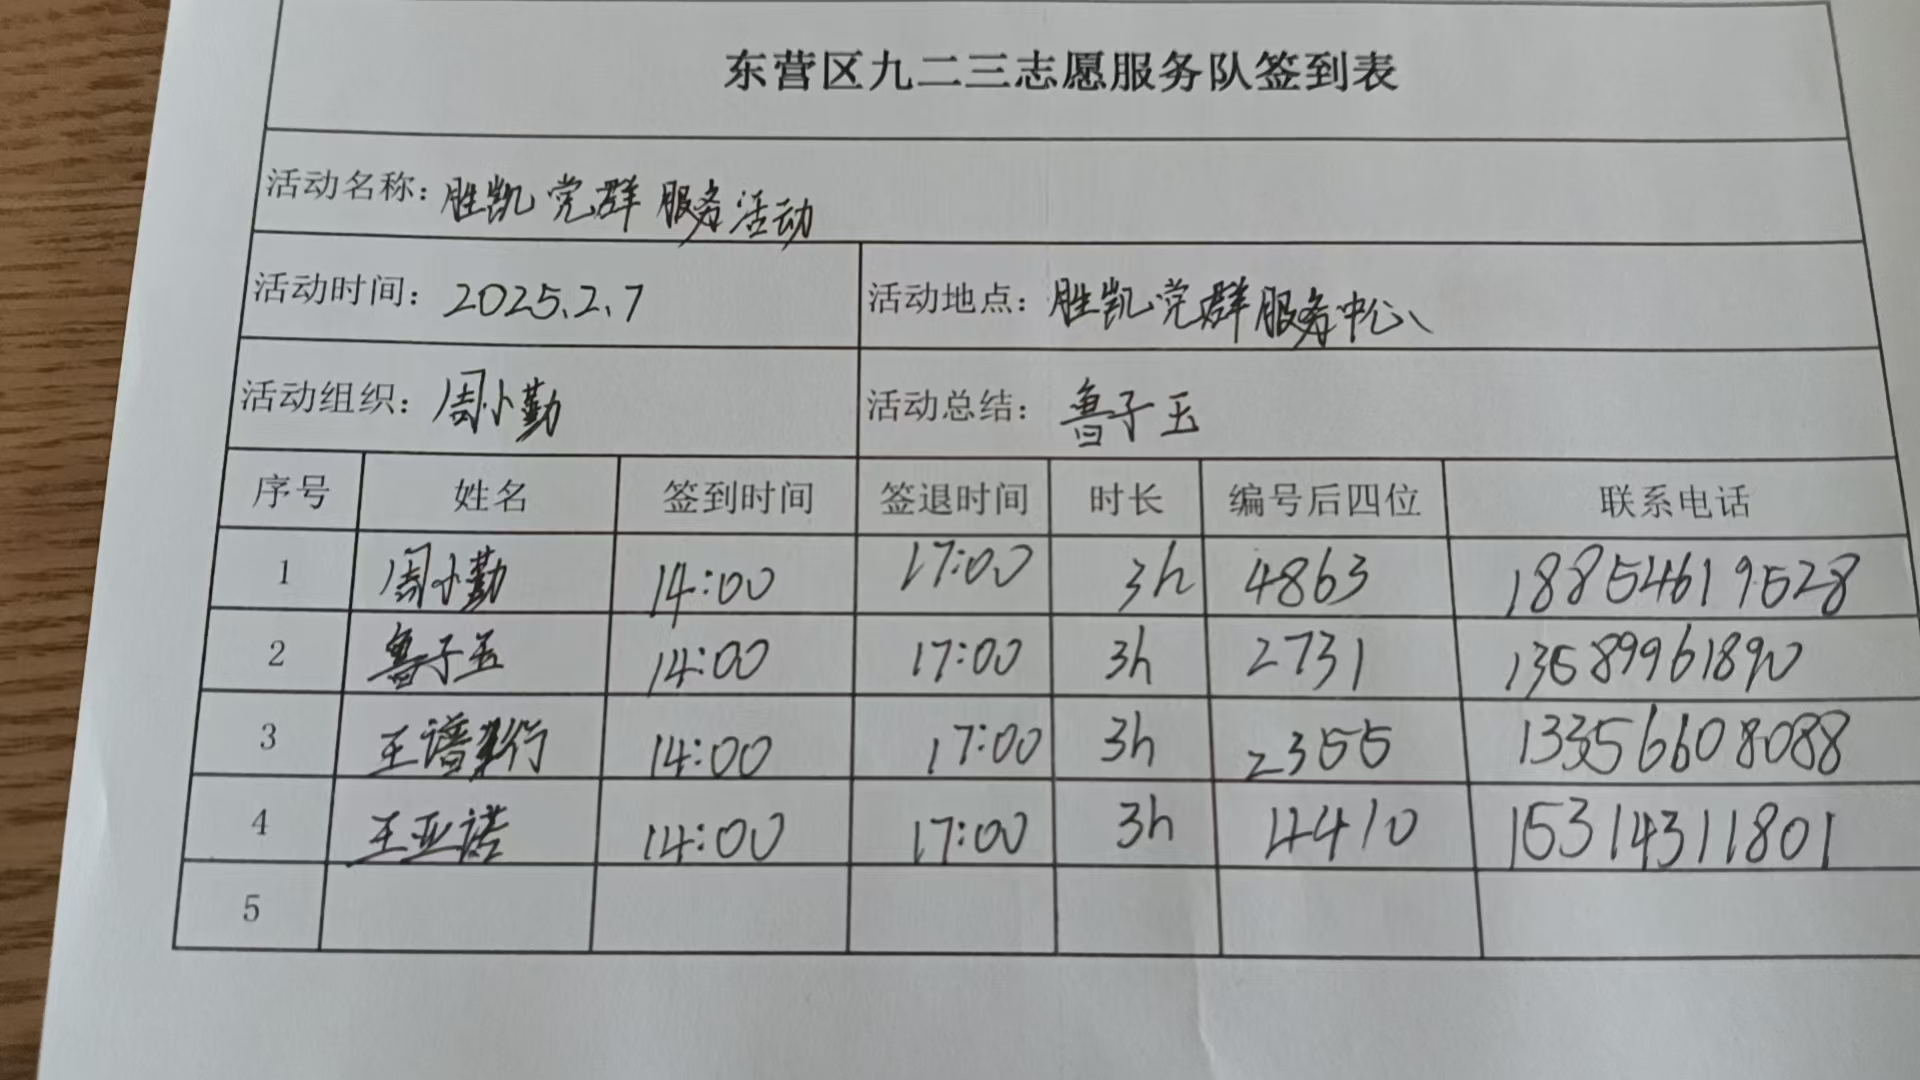 东营区九二三志愿服务队签到表
活动名称：胜凯党群服务活动
活动时间：2025.2.7 活动地点：胜凯党群服务中心
活动组织：周小勤 活动总结：鲁子玉
序号 姓名 签到时间 签退时间 时长 编号后四位 联系电话
1 周小勤 14:00 17:00 3h 4863 18854619528
2 鲁子玉 14:00 17:00 3h 2731 13589961890
3 王谱行 14:00 17:00 3h 2355 13356608088
4 王亚诺 14:00 17:00 3h 4410 15314311801
5